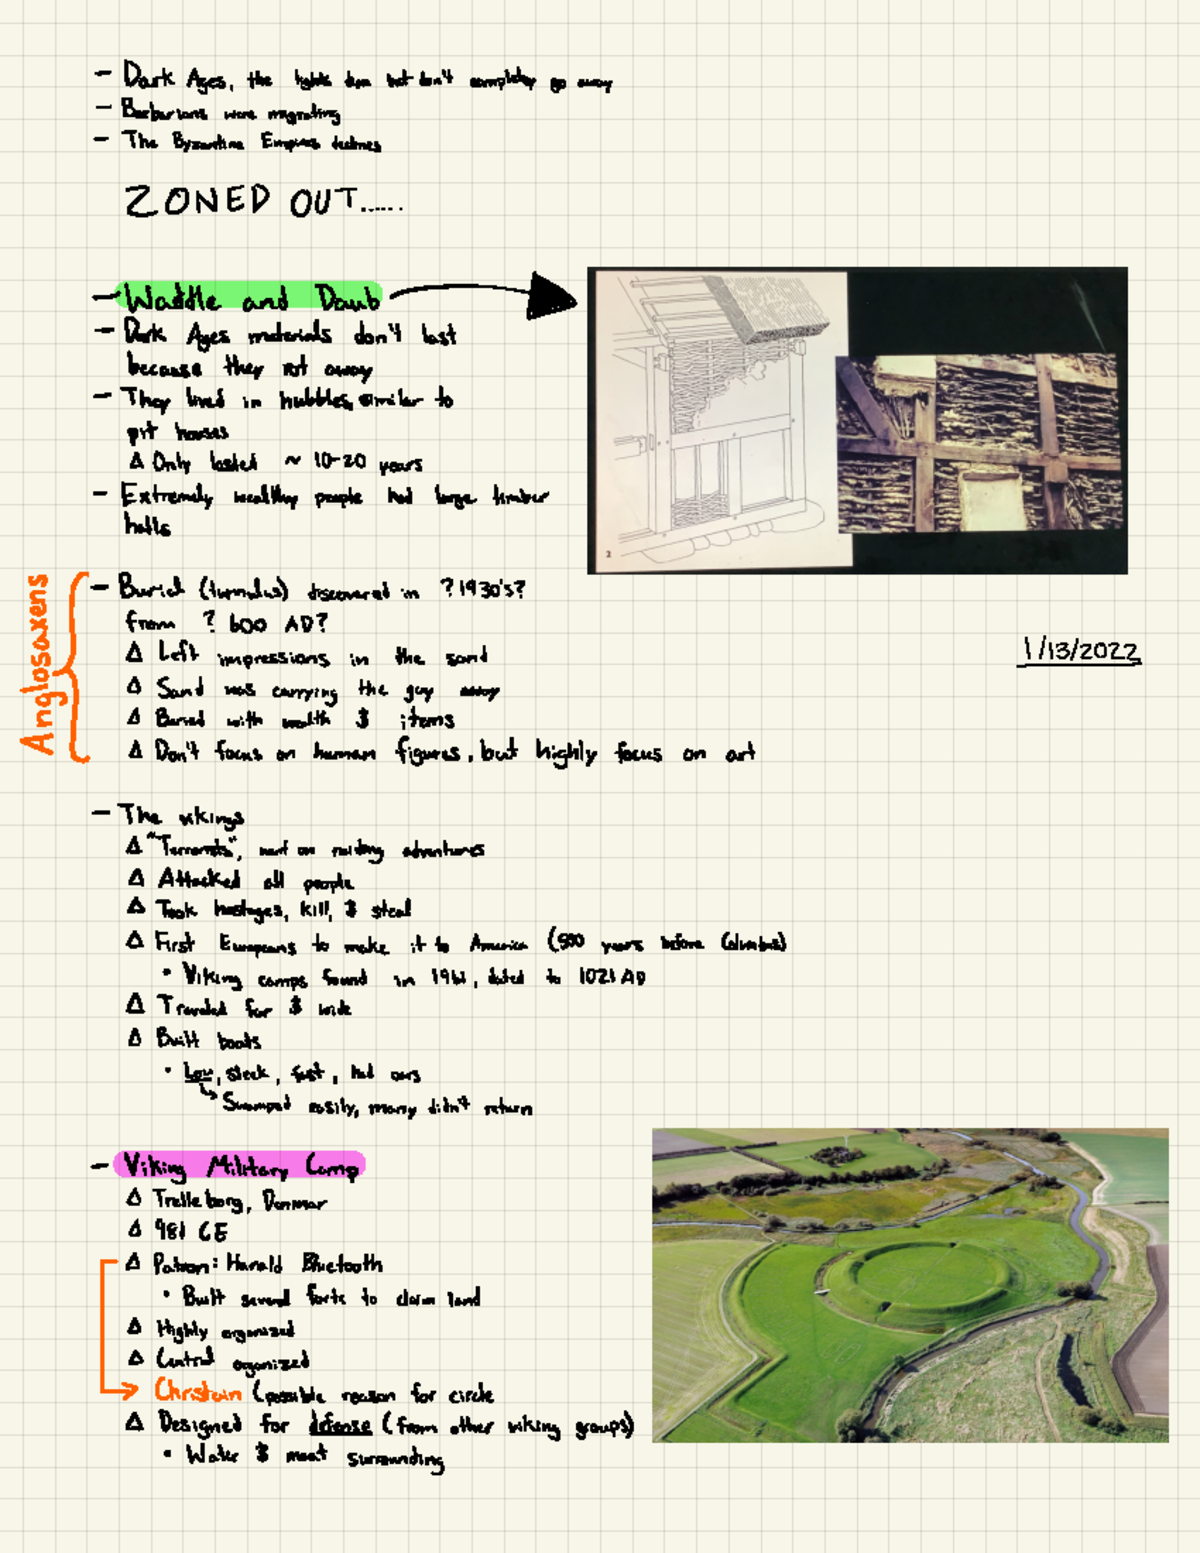 - Dark Ages, the lights dim but don't completely go away
- Barbarians were migrating
- The Byzantine Empires declines
ZONED OUT.....
- Waddle and Daub
- Dark Ages materials don't last
because they rot away
- They lived in hubbles, similar to
pit houses
Δ Only lasted ~ 10-20 years
- Extremely wealthy people had large timber
halls
2
Anglosaxens
- Burial (tumulus) discovered in ?1930's?
from ? 600 AD?
1/13/2022
Δ Left impressions in the sand
Δ Sand was carrying the guy away
Δ Buried with wealth & items
Δ Don't focus on human figures, but highly focus on art
- The vikings
Δ "Terrorists", went on raiding adventures
Δ Attacked all people
Δ Took hostages, kill, & steal
Δ First Europeans to make it to America (500 years before Columbus)
• Viking camps found in 1961, dated to 1021 AD
Δ Traveled far & wide
Δ Built boats
• Low, sleek, fast, had oars
↳ Swamped easily, many didn't return
- Viking Military Camp
Δ Trelleborg, Denmar
Δ 981 CE
Δ Patron: Harald Bluetooth
• Built several forts to claim land
Δ Highly organized
Δ Central organized
Christain (possible reason for circle
Δ Designed for defense (from other viking groups)
• Water & moat surrounding